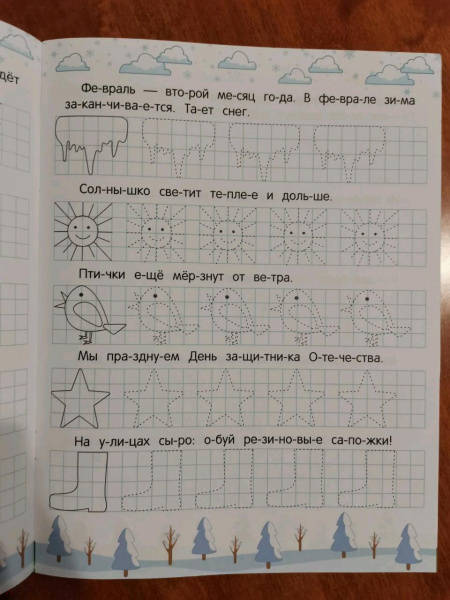 дёт
Фе-враль — вто-рой ме-сяц го-да. В фе-вра-ле зи-ма
за-кан-чи-ва-е-тся. Та-ет снег.
Сол-ны-шко све-тит те-пле-е и доль-ше.
Пти-чки е-щё мёр-знут от ве-тра.
Мы пра-здну-ем День за-щи-тни-ка О-те-че-ства.
На у-ли-цах сы-ро: о-буй ре-зи-но-вы-е са-по-жки!